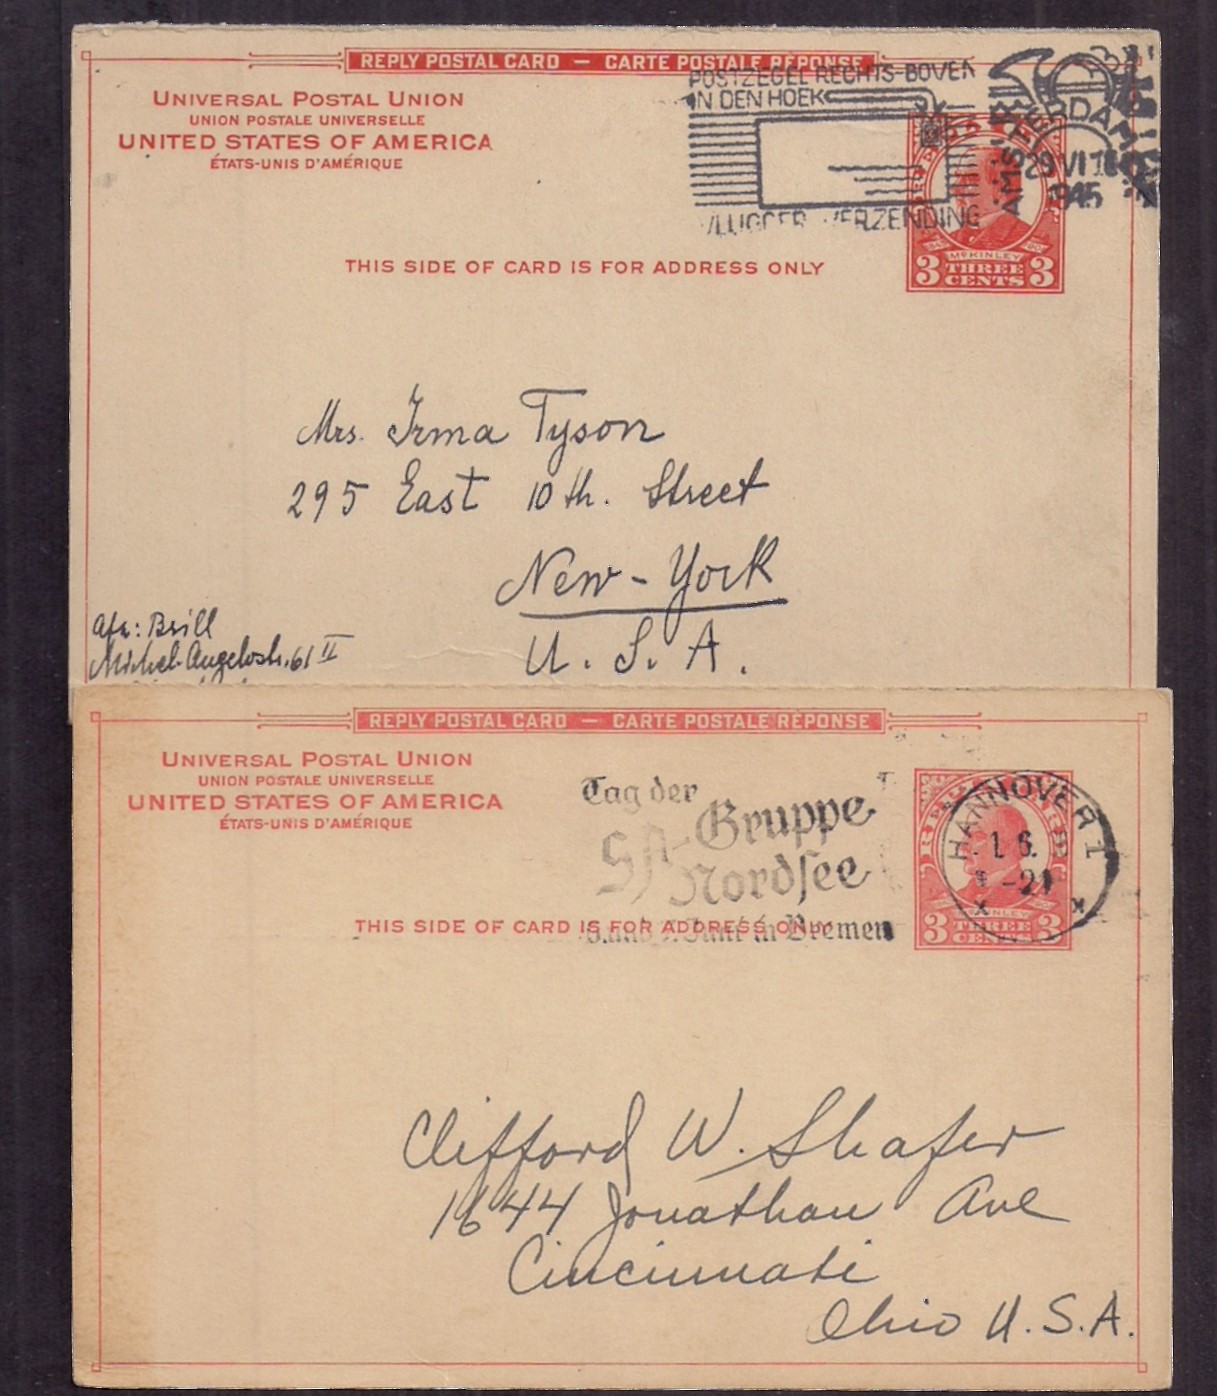 REPLY POSTAL CARD — CARTE POSTALE RÉPONSE
UNIVERSAL POSTAL UNION
UNION POSTALE UNIVERSELLE
UNITED STATES OF AMERICA
ÉTATS-UNIS D'AMÉRIQUE
POSTZEGEL RECHTS-BOVEN
IN DEN HOEK
VLUGGER VERZENDING
AMSTERDAM
29 VI
1945
McKINLEY
3 THREE CENTS 3
THIS SIDE OF CARD IS FOR ADDRESS ONLY
Mrs. Irma Tyson
295 East 10th. Street
New-York
U.S.A.
Afz: Brill
Michel-Angelostr. 61 II
REPLY POSTAL CARD — CARTE POSTALE RÉPONSE
UNIVERSAL POSTAL UNION
UNION POSTALE UNIVERSELLE
UNITED STATES OF AMERICA
ÉTATS-UNIS D'AMÉRIQUE
Tag der
SA-Gruppe
Nordsee
in Bremen
HANNOVER 1
3 THREE CENTS 3
THIS SIDE OF CARD IS FOR ADDRESS ONLY
Clifford W. Shafer
1644 Jonathan Ave
Cincinnati
Ohio U.S.A.